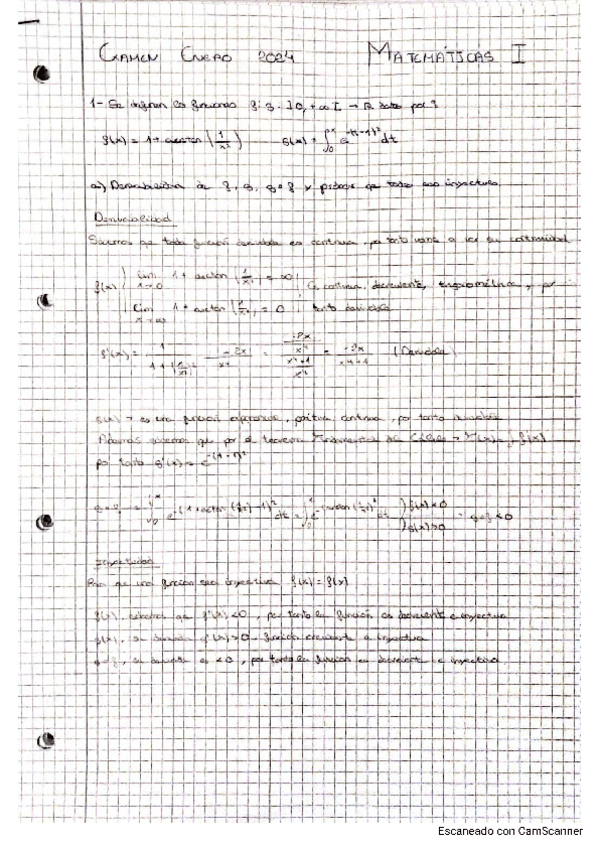 EXAMEN ENERO 2024 MATEMÁTICAS I
1- Se definen las funciones f, g: ]0, +∞[ → R dadas por:
f(x) = 1 + arctan (1/x²) g(x) = ∫₀ˣ e^-(t-1)² dt
a) Derivabilidad de f, g, g∘f y probar que todas son inyectivas.
Derivabilidad
Sabemos que toda función derivable es continua, por tanto vamos a ver su continuidad
f(x) lim x→0 1 + arctan (1/x²) = ∞ Es continua, decreciente, trigonométrica, por
lim x→∞ 1 + arctan (1/x²) = 0 tanto derivable
f'(x) = -2x / x⁴+1 (Derivable)
g(x) → es una función exponencial, positiva, continua, por tanto derivable
Además sabemos que por el teorema Fundamental del Cálculo →
por tanto g'(x) =
f'(x)<0
g'(x)>0 g∘f <0
Inyectividad
Para que una función sea inyectiva f(x) = f(y)
f(x), sabemos que f'(x) <0, por tanto la función es decreciente e inyectiva
g(x), su derivada g'(x)>0 función creciente e inyectiva
g∘f, su derivada es <0, por tanto la función es decreciente e inyectiva.
Escaneado con CamScanner